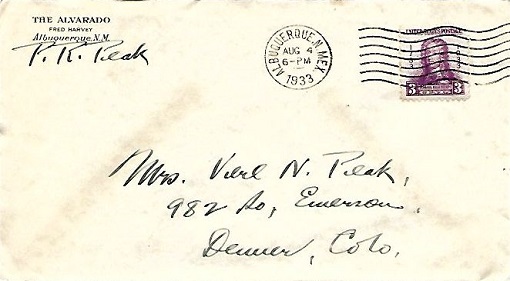 THE ALVARADO
FRED HARVEY
Albuquerque, N.M.
P. K. Peak
ALBUQUERQUE, N.MEX.
AUG 4
6-PM
1933
UNITED STATES POSTAGE
1733
1933
3 3
Mrs. Verl N. Peak,
982 So, Emerson,
Denver, Colo.